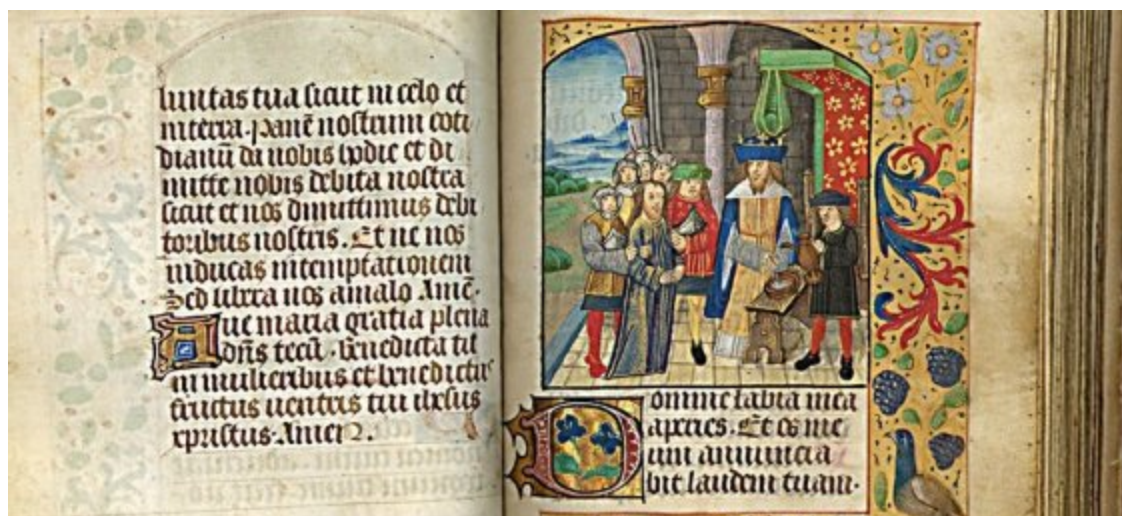 luntas tua sicut in celo et
in terra. Panē nostrum coti
dianū da nobis hodie et di
mitte nobis debita nostra
sicut et nos dimittimus debi
toribus nostris. Et ne nos
inducas in temptationem
Sed libera nos a malo Amē.
Aue maria gratia plena
dn̄s tecū. benedicta tu
in mulieribus et benedictus
fructus uentris tui ihesus
xpristus. Amen.
Domine labia mea
aperies. Et os me
um annuncia
bit laudem tuam.